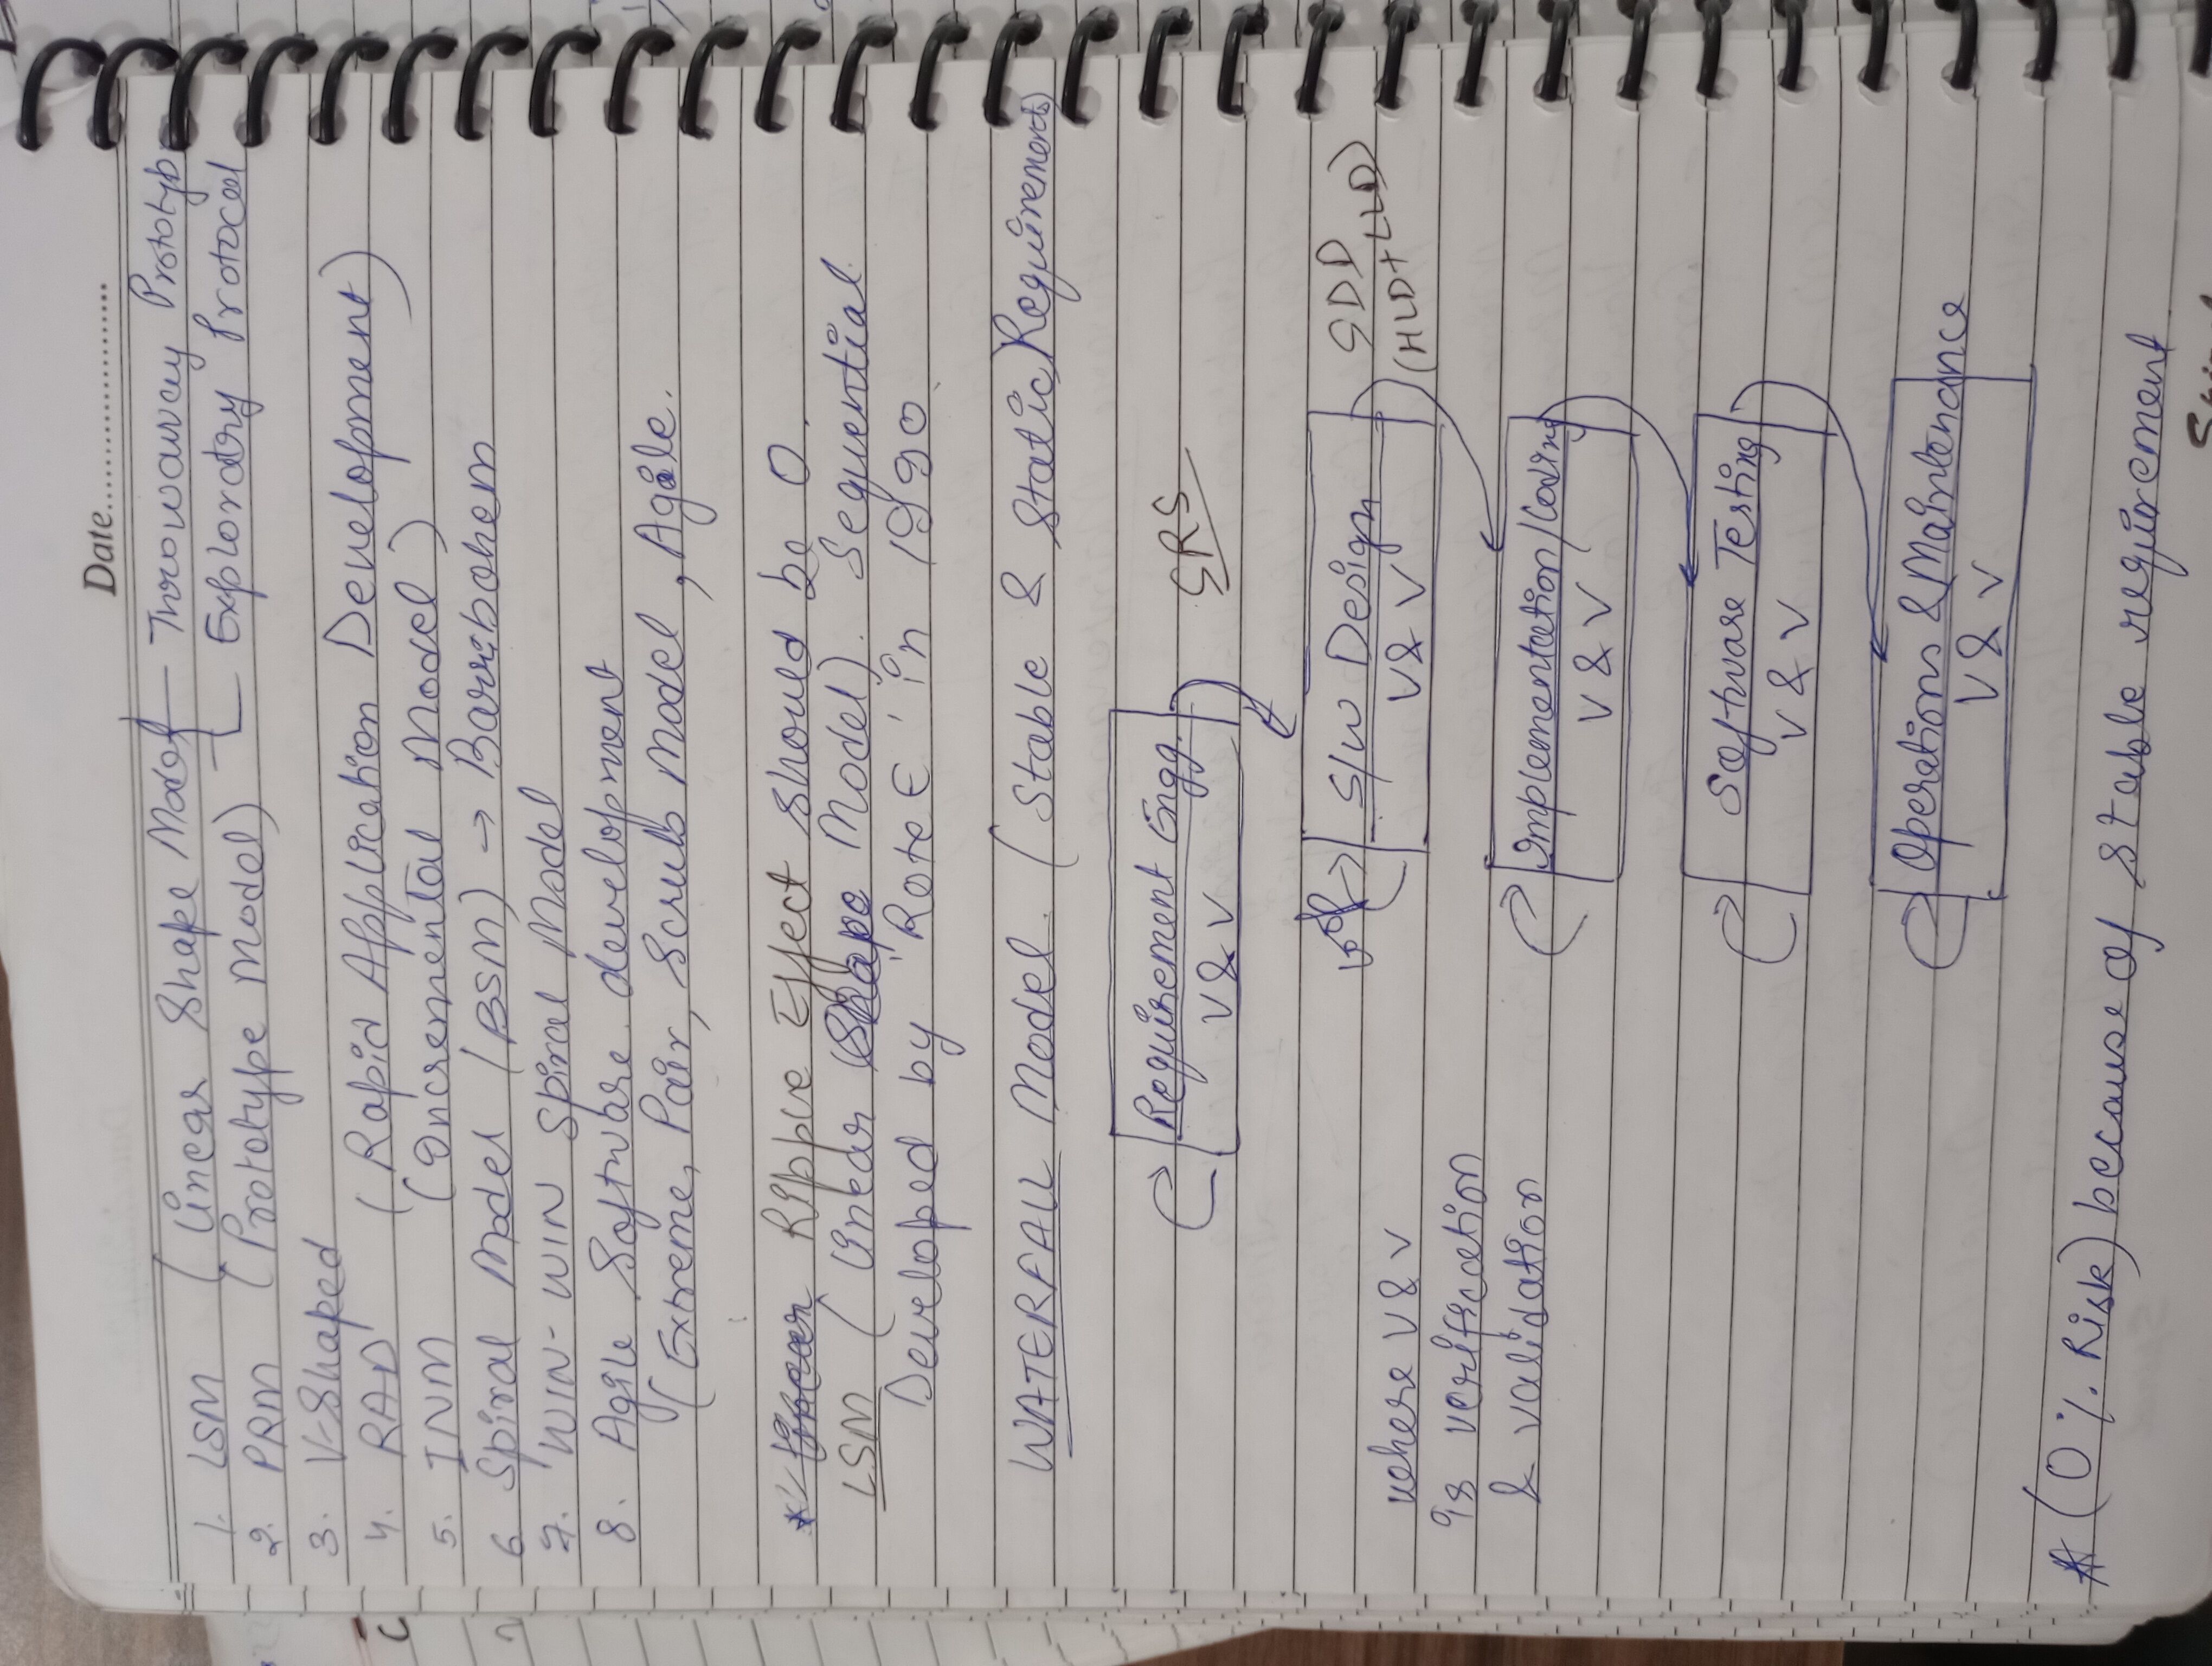 Date....................
1. LSM (Linear Shape Model — Throwaway Prototyp
2. PRM (Prototype Model) — Exploratory Protocol
3. V-Shaped
4. RAD (Rapid Application Development)
5. INM (Incremental Model)
6. Spiral Model (BSM) → Barrebohem
7. WIN-WIN Spiral Model
8. Agile Software development
(Extreme, Pair, Scrub Model, Agile.
Ripple Effect should be 0.
LSM (Linear Shape Model). Sequential
Developed by 'Rote E' in 1990
WATERFALL Model. (Stable & Static) Requirements)
Requirement Engg.
V & V
SRS
where V & V
is verification
& validation
S/W Design
V & V
SDD
(HLD+LLD)
Implementation/Coding
V & V
Software Testing
V & V
Operations & Maintenance
V & V
* (0% Risk) because of stable requirement